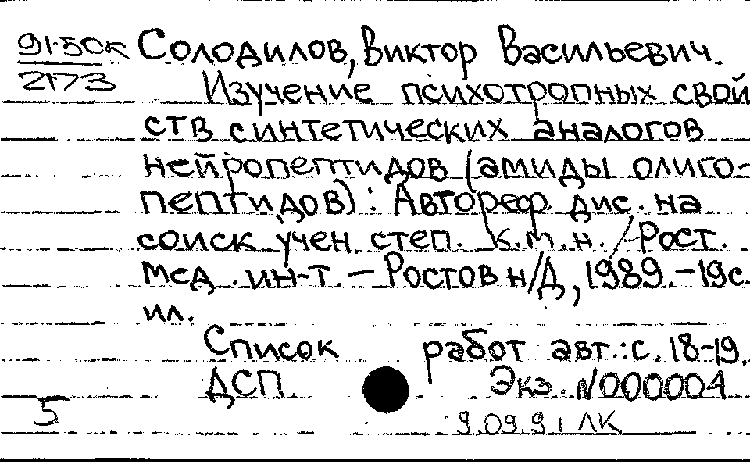 91-50к Солодилов, Виктор Васильевич.
2173
Изучение психотропных свой
ств синтетических аналогов
нейропептидов (амиды олиго-
пептидов): Автореф. дис. на
соиск. учен. степ. к.м.н. / Рост.
мед. ин-т. - Ростов н/Д, 1989. - 19с.
ил.
Список работ авт.: с. 18-19.
ДСП Экз. N000004
5
9.09.91 ЛК